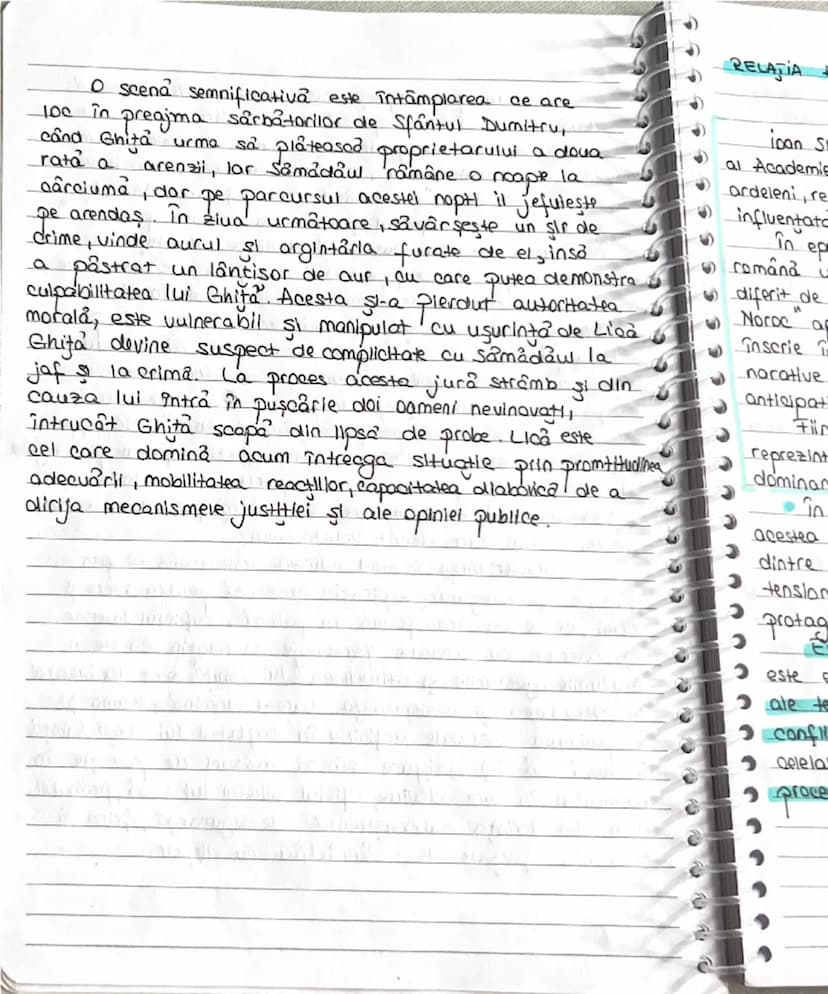 O scenă semnificativă este întâmplarea ce are
loc în preajma sărbătorilor de Sfântul Dumitru,
când Ghiță urma să plătească proprietarului a doua
rată a arenzii, iar Sămădăul rămâne o noapte la
cârciumă, dar pe parcursul acestei nopti îl jefuiește
pe arendaș. În ziua următoare, săvârșește un șir de
crime, vinde aurul și argintăria furate de el, însă
a păstrat un lănțisor de aur, cu care putea demonstra
culpabilitatea lui Ghiță. Acesta și-a pierdut autoritatea
morală, este vulnerabil și manipulat cu ușurință de Lică
Ghiță devine suspect de complicitate cu Sămădăul la
jaf și la crimă. La proces acesta jură strâmb și din
cauza lui intră în pușcărie doi oameni nevinovați,
întrucât Ghiță scapă din lipsă de probe. Lică este
cel care domină acum întreaga situație prin promtitudinea
adecvării, mobilitatea reacțiilor, capacitatea diabolică de a
dirija mecanismele justiției și ale opiniei publice.
RELAȚIA
Ioan
al Academie
ardeleni, re
influențat
în ep
română
diferit de
Noroc"
înscrie
narative
anticipat
Fiir
reprezint
dominan
în
acestea
dintre
tension
protag
este
ale te
confli
celela
proce